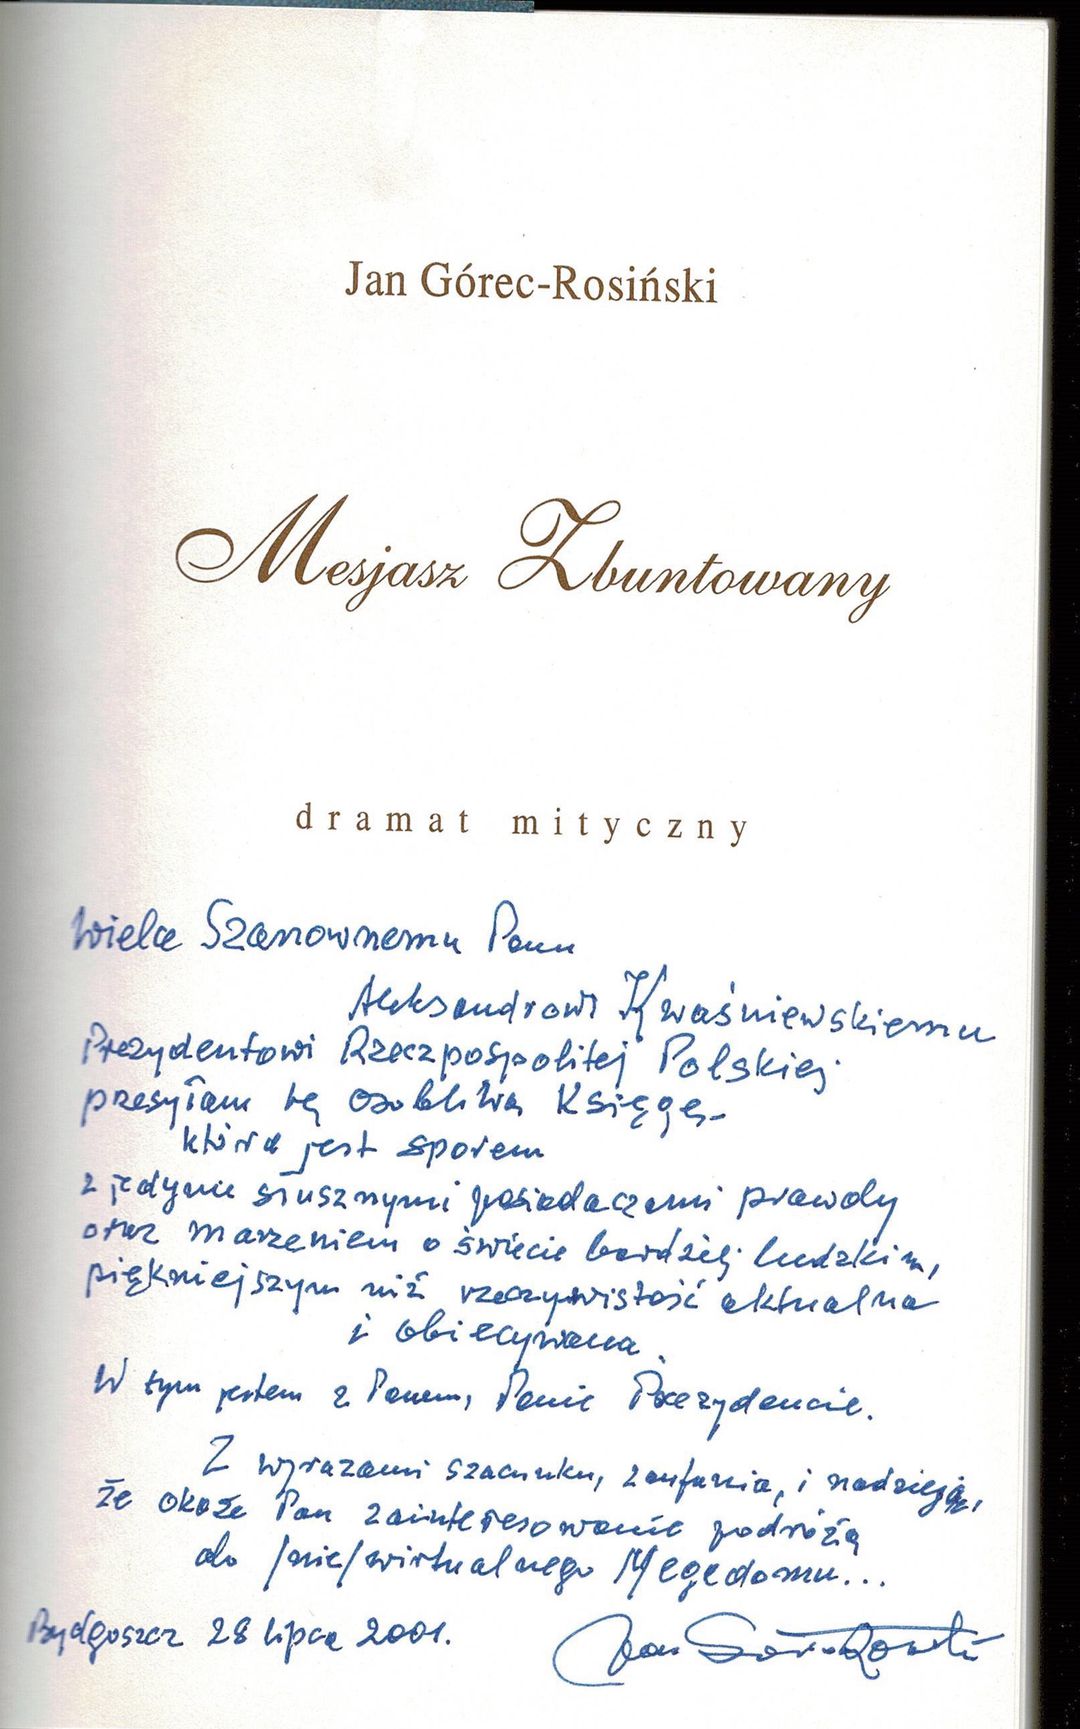 Jan Górec-Rosiński
Mesjasz Zbuntowany
dramat mityczny
Wielce Szanownemu Panu
Aleksandrowi Kwaśniewskiemu
Prezydentowi Rzeczpospolitej Polskiej
przesyłam tę osobliwą Księgę
która jest sporem
z jedynie słusznymi posiadaczami prawdy
oraz marzeniem o świecie bardziej ludzkim,
piękniejszym niż rzeczywistość aktualna
i obiecywana.
W tym jestem z Panem, Panie Prezydencie.
Z wyrazami szacunku, zaufania, i nadzieją,
że okaże Pan zainteresowanie podróżą
do /nie/wirtualnego Megedomu...
Bydgoszcz 28 lipca 2001.
Jan Górec-Rosiński